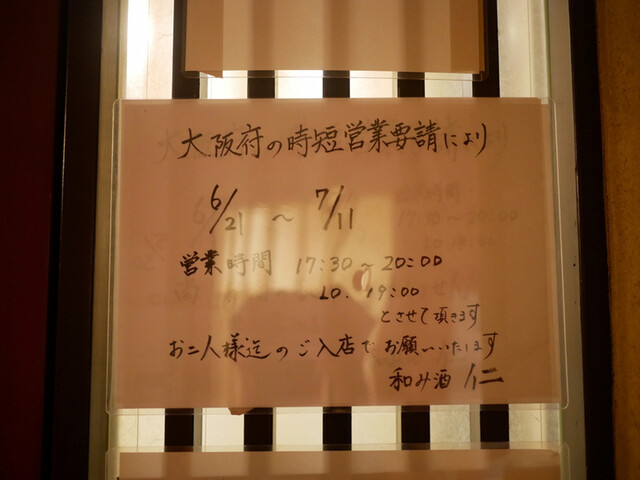 大阪府の時短営業要請により
6/21 ～ 7/11
営業時間 17:30～20:00
LO. 19:00
とさせて頂きます
お二人様迄のご入店でお願いいたします
和み酒 仁